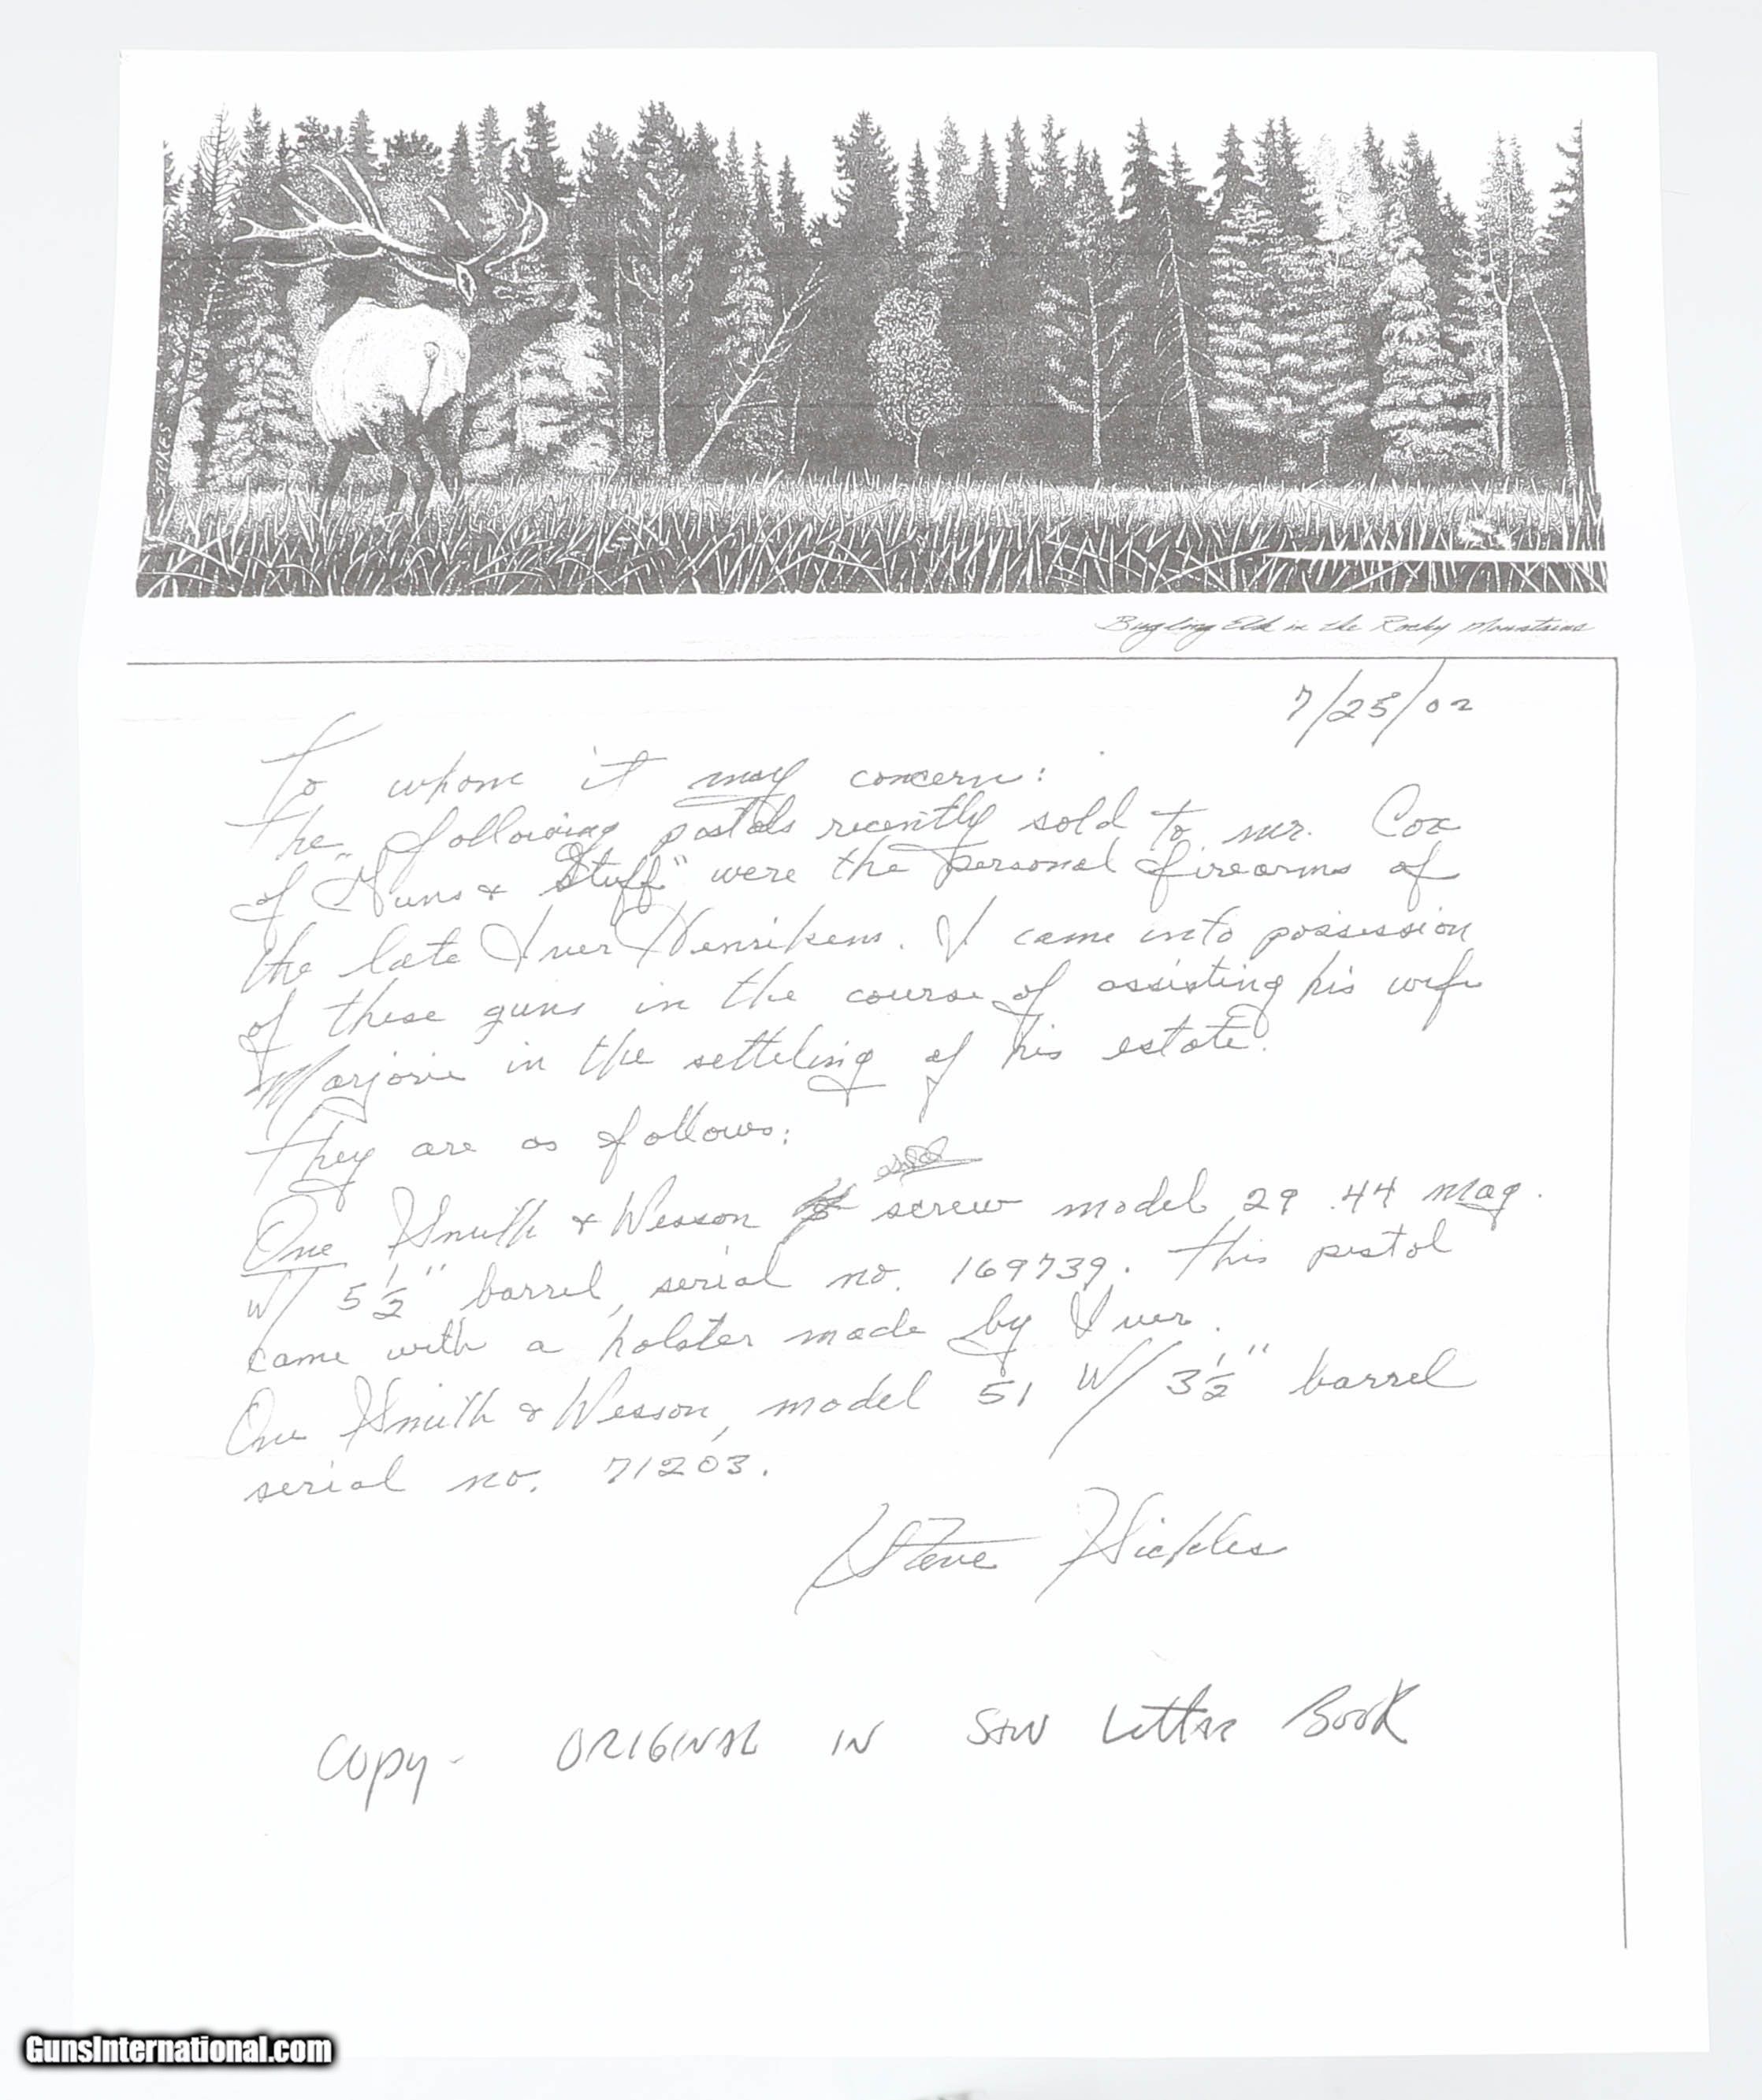 STOKES
Bugling Elk in the Rocky Mountains
7/25/02
To whom it may concern:
The following pistols recently sold to mr. Cox
of "Guns & Stuff" were the personal firearms of
the late Iver Henriksen. I came into possession
of these guns in the course of assisting his wife
Marjorie in the setteling of his estate.
They are as follows:
One Smith & Wesson screw model 29 .44 mag.
W/ 5 1/2" barrel, serial no. 169739. This pistol
came with a holster made by Iver.
One Smith & Wesson, model 51 W/ 3 1/2" barrel
serial no. 71203.
Steve Hickles
Copy - ORIGINAL IN S&W Letter Book
GunsInternational.com